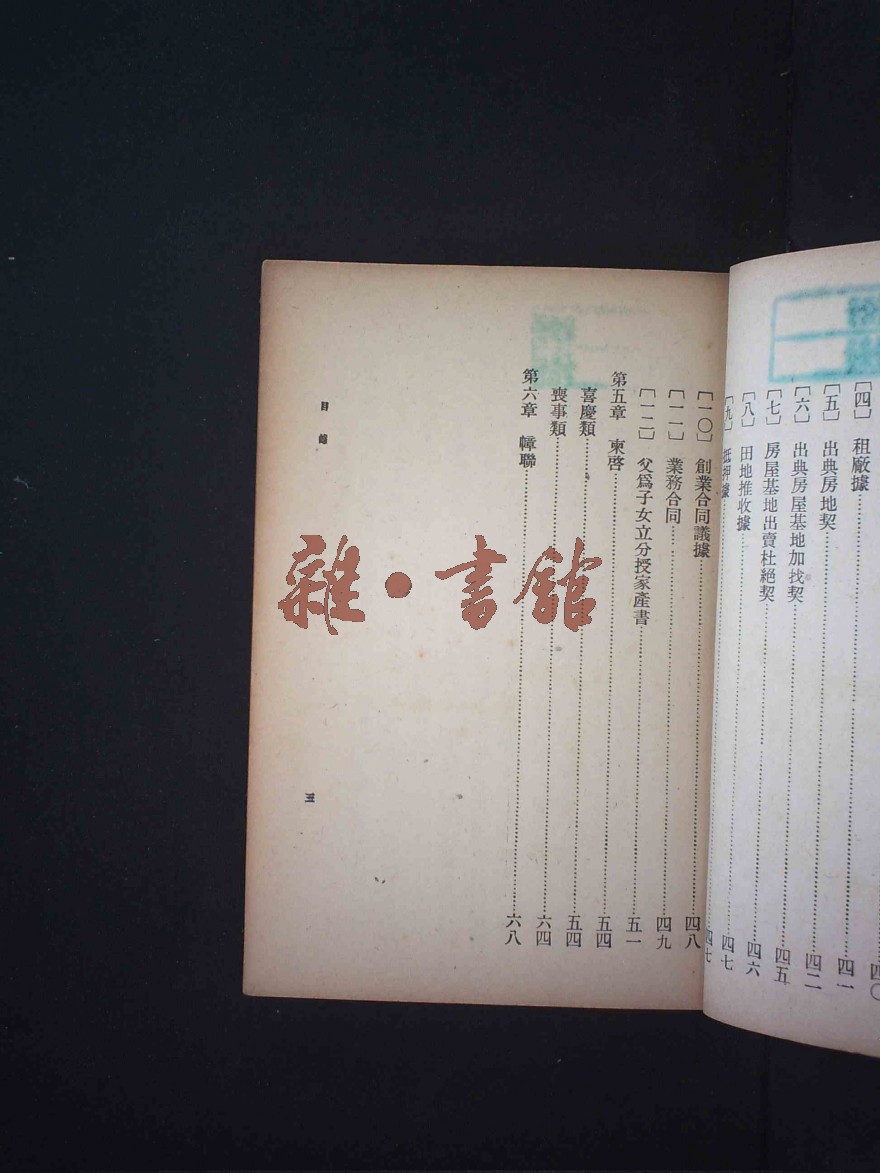 〔四〕 租廠據……四〇
〔五〕 出典房地契……四一
〔六〕 出典房屋基地加找契……四二
〔七〕 房屋基地出賣杜絕契……四五
〔八〕 田地推收據……四六
〔九〕 抵押據……四七
四七
〔一〇〕 創業合同議據……四八
〔一一〕 業務合同……四九
〔一二〕 父爲子女立分授家產書……五一
第五章 柬啓……五四
喜慶類……五四
喪事類……六四
第六章 幛聯……六八
目錄
三
雜·書館